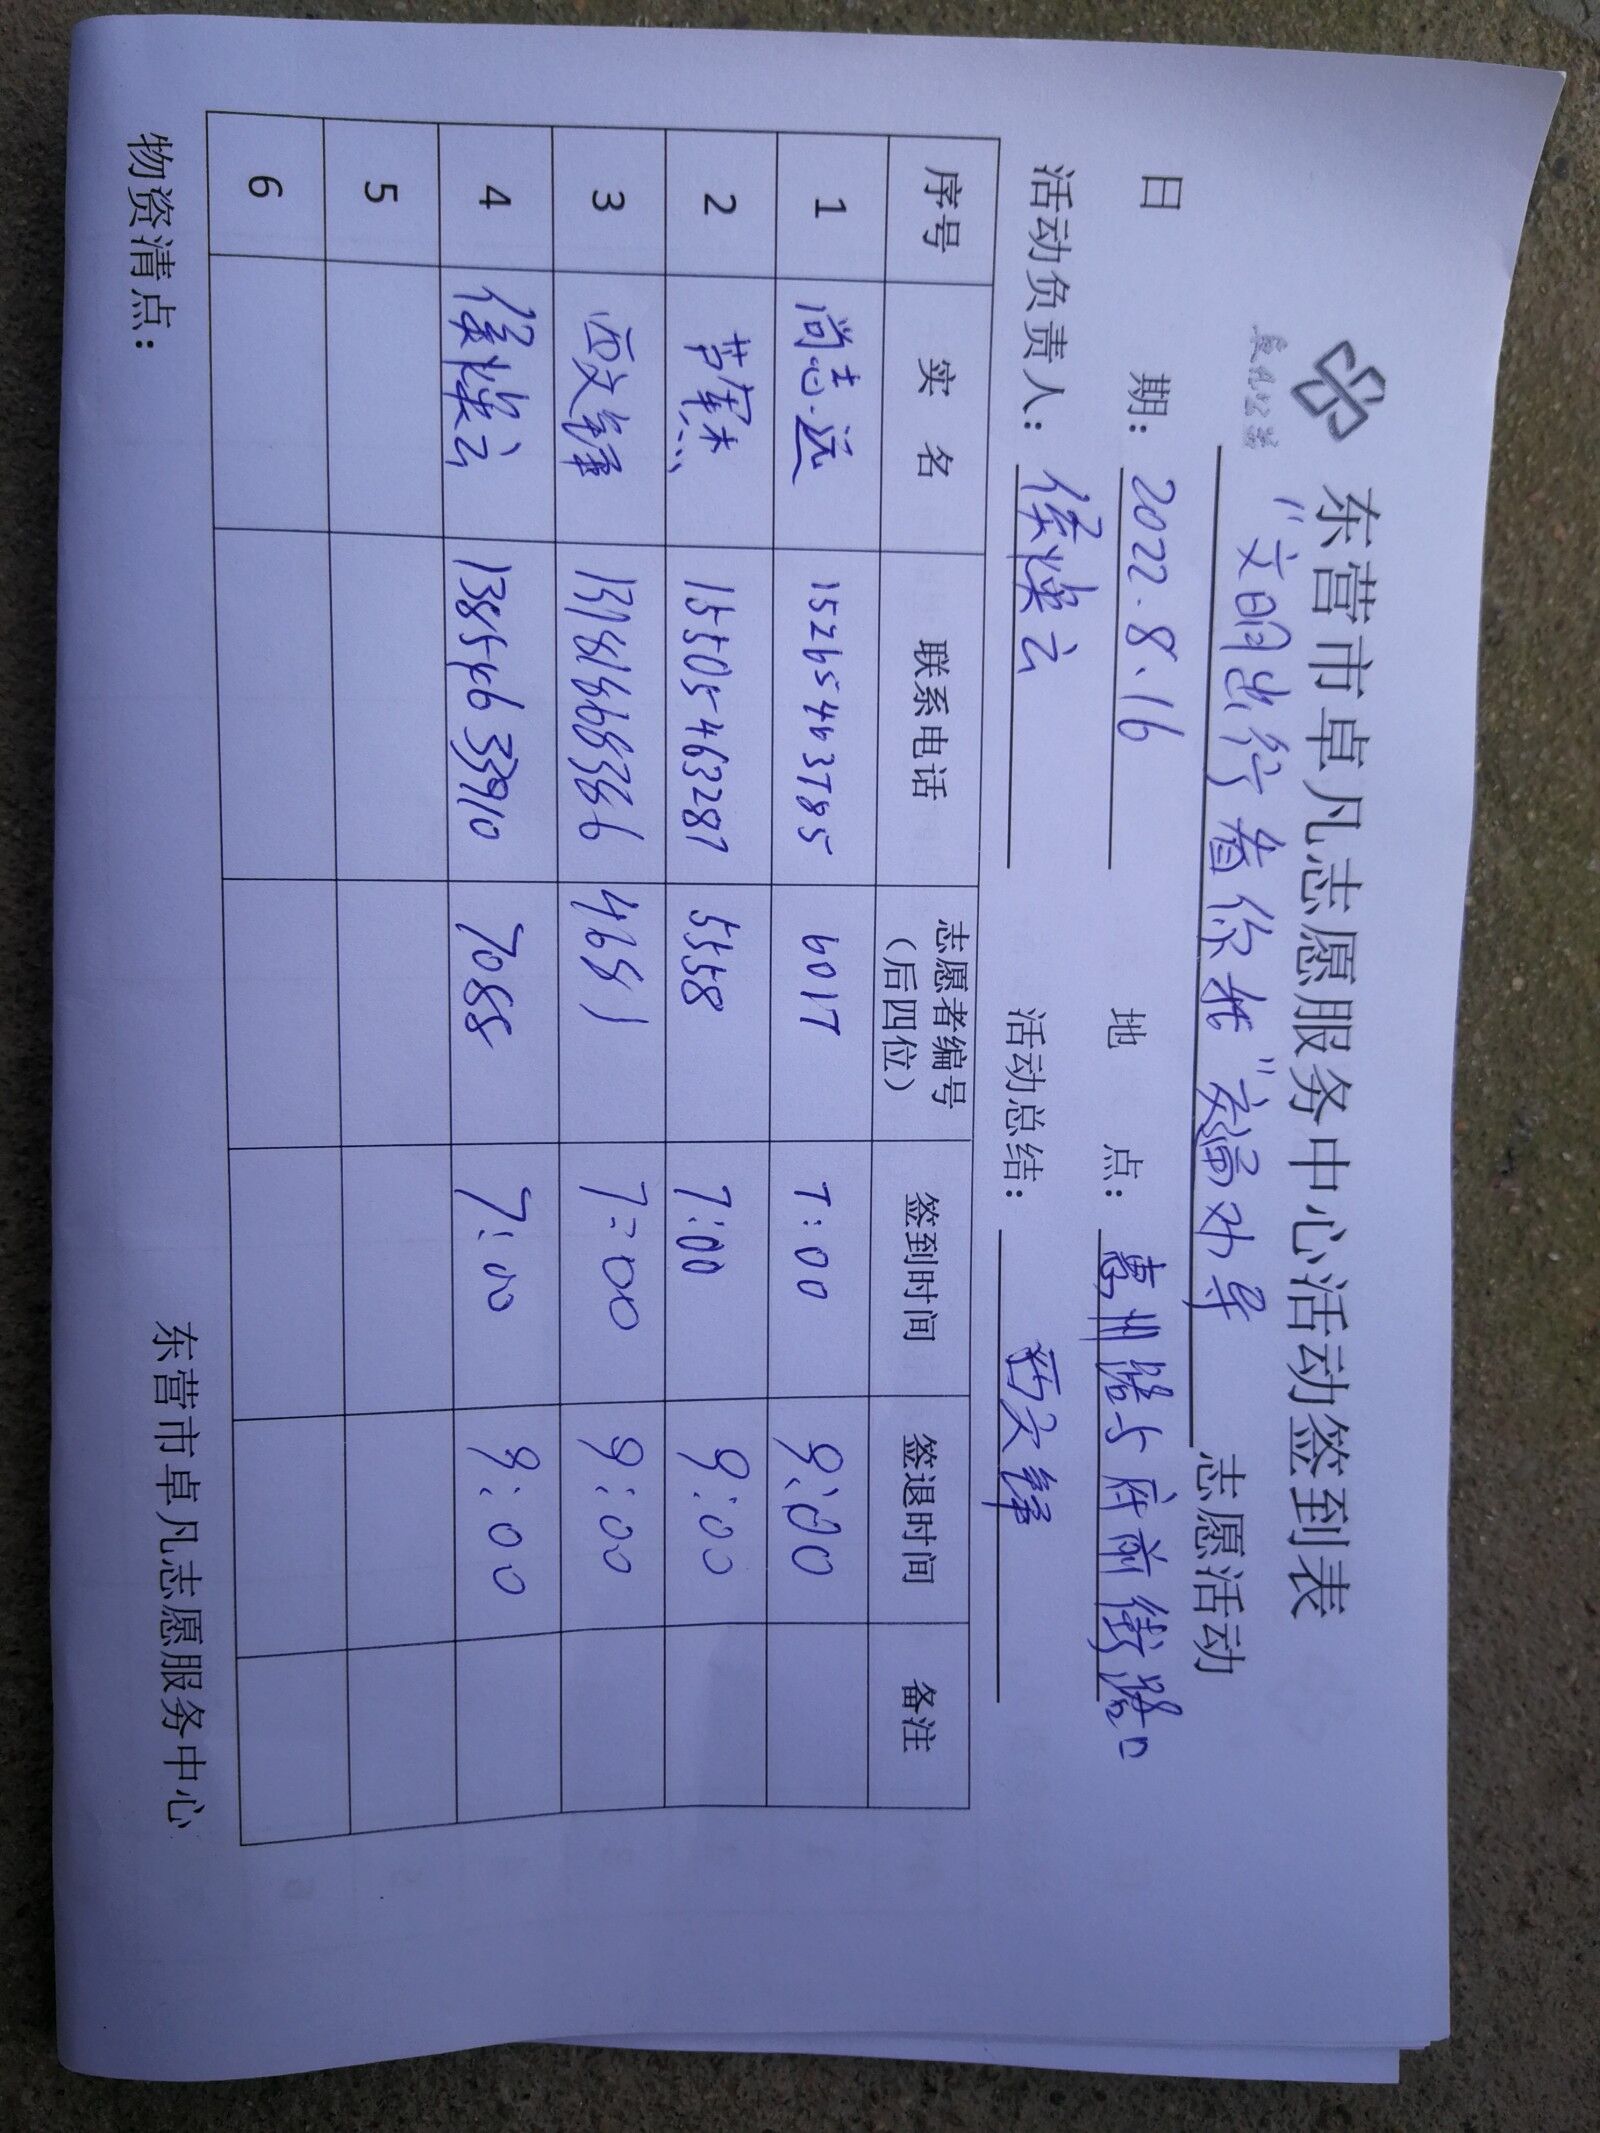 东营市卓凡志愿服务中心活动签到表
“文明出行 看你我”交通劝导 志愿活动
日 期：2022.8.16 地 点：惠州路与府前街路口
活动负责人：侯焕云 活动总结：西文锋
序号 实 名 联系电话 志愿者编号（后四位） 签到时间 签退时间 备注
1 尚志远 15265443785 6017 7:00 9:00
2 15505463287 5558 7:00 9:00
3 西文锋 13181868366 4681 7:00 9:00
4 侯焕云 13854633910 7088 7:00 9:00
5
6
物资清点：
东营市卓凡志愿服务中心